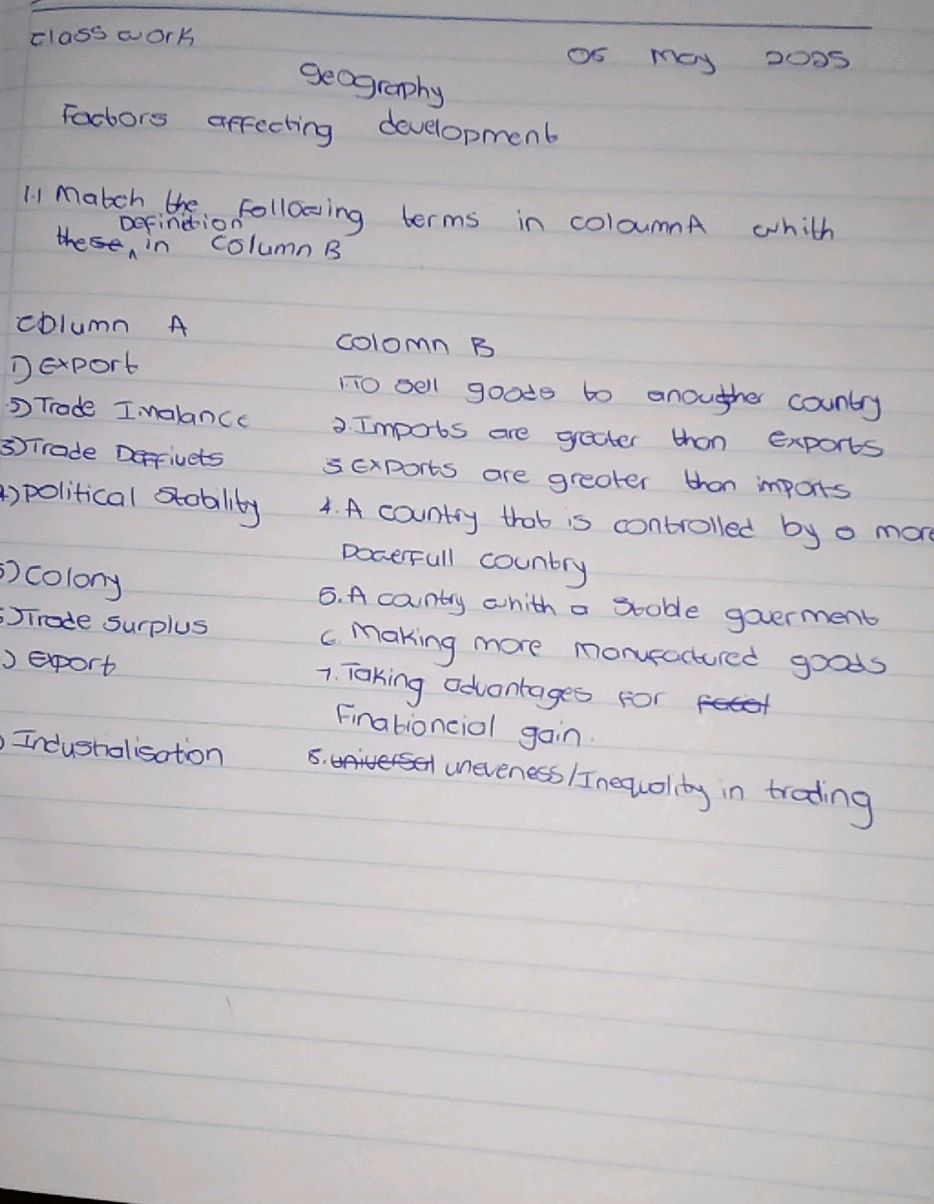 classwork
05 May 2025
geography
Factors affecting development
1.1 Match the following terms in coloumnA whith
Definition
these ^ in column B
column A
colomn B
1) Export
1 To sell goods to anougther country
Trade Imalance
2. Imports are greater than Exports
3) Trade Deffivets
3 Exports are greater than imports
4) political stability
4. A country that is controlled by a more
Powerfull country
5) colony
5. A cauntry whith a stable gouerment
Trade surplus
6 Making more manufactured goods
) Export
7. Taking advantages for
Finabioncial gain.
) Industialisation
8. uneveness/Inequality in trading